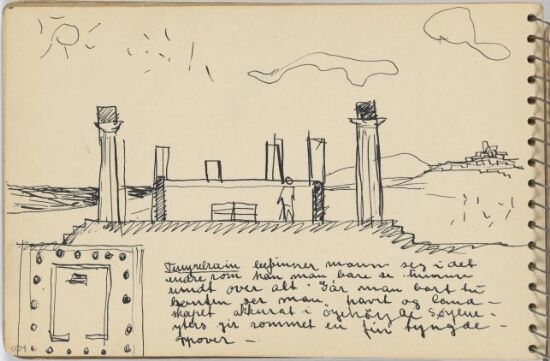 befinner mann seg i det
indre som kan man bare se
rundt over alt. Går man bort til
kanten ser man havet og land-
skapet akkurat i øyehöjde. Søylene
ytters gir rommet en fin tyngde-
oppover —